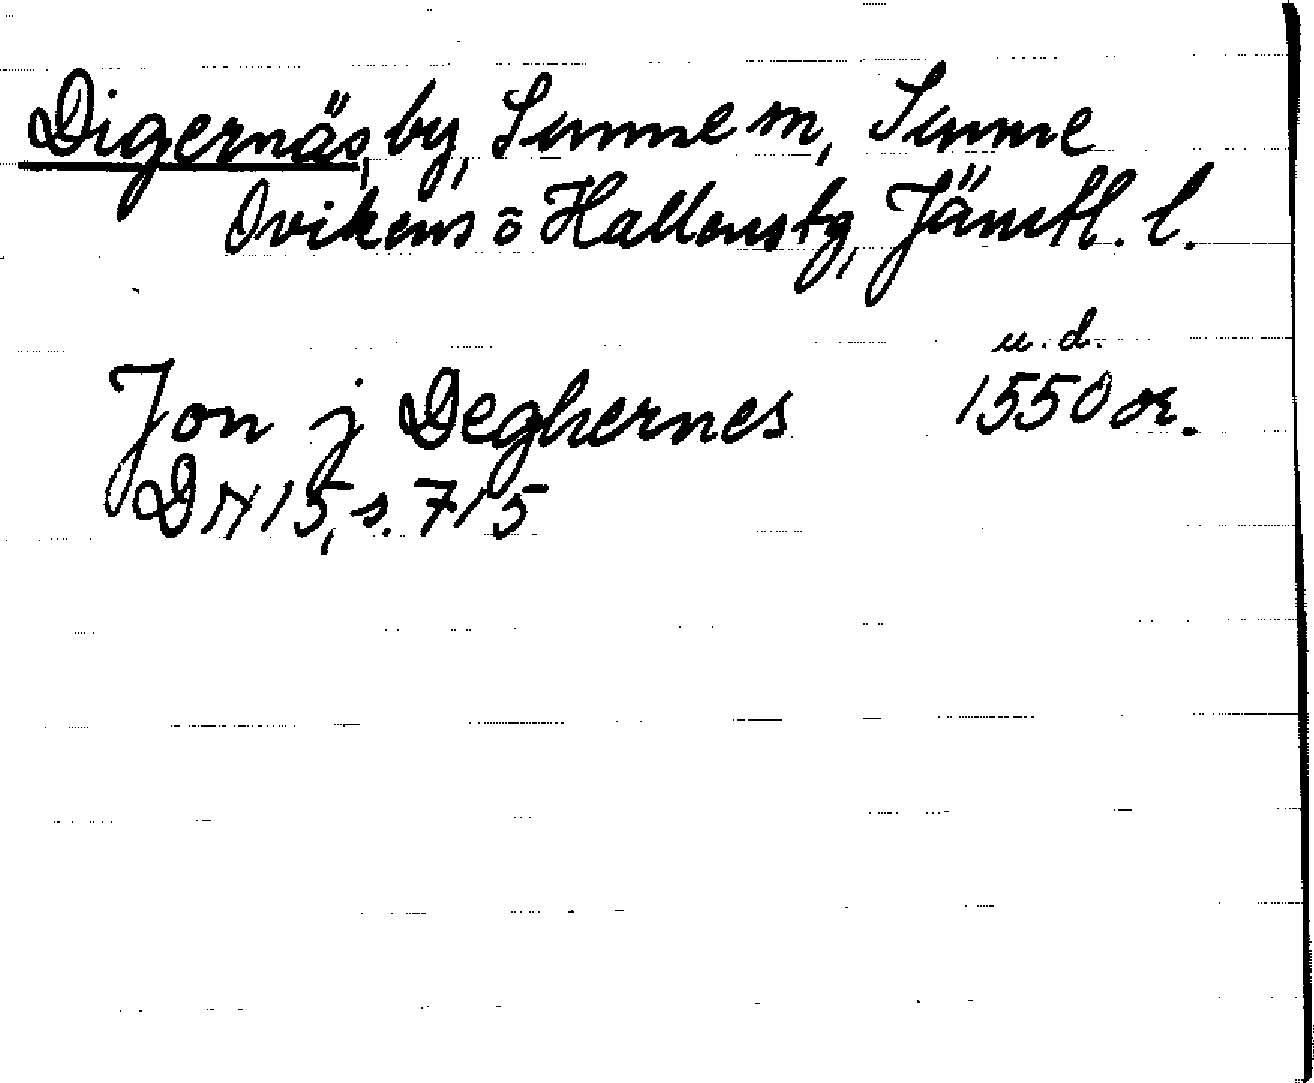 Digernäs, by, Sunne sn, Sunne
Ovikens o Hallens tg, Jämtl. l.
u.d.
Jon j Deghernes 1550 or.
DN 15, s. 715